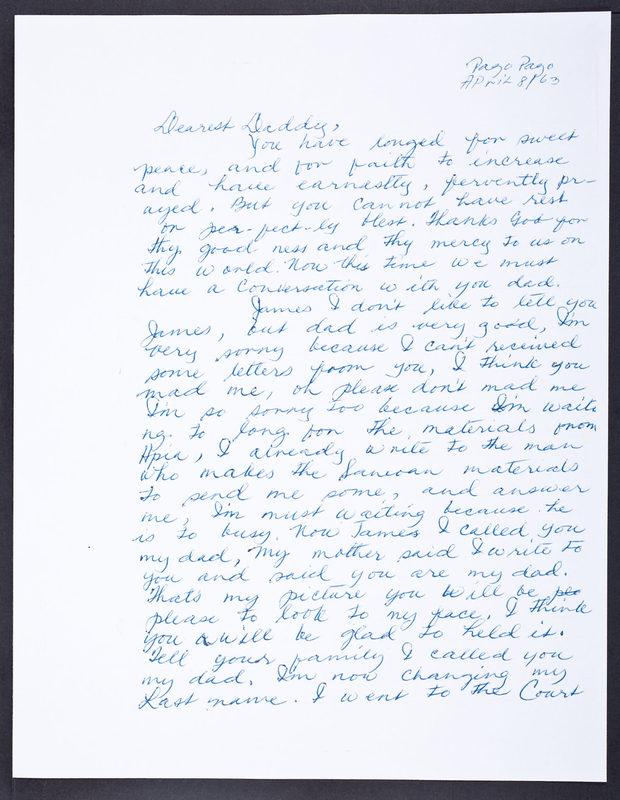 Pago Pago
April 8/63
Dearest Daddy,
You have longed for sweet
peace, and for faith to increase
and have earnestly, fervently pr-
ayed. But you cannot have rest
or per-fect-ly blest. Thanks God for
thy good ness and thy mercy to us on
this world. Now this time we must
have a conversation with you dad.
James I don't like to tell you
James, but dad is very good, I'm
very sorry because I can't received
some letters from you, I think you
mad me, oh please don't mad me
I'm so sorry too because I'm waiti
ng. to long for the materials from
Apia, I already write to the man
who makes the Samoan materials
to send me some, and answer
me, I'm must waiting because he
is to busy. Now James I called you
my dad, My mother said I write to
you and said you are my dad.
Thats my picture you will be
please to look to my face, I think
you will be glad to held it.
Tell your family I called you
my dad. I'm now changing my
Last name. I went to the Court